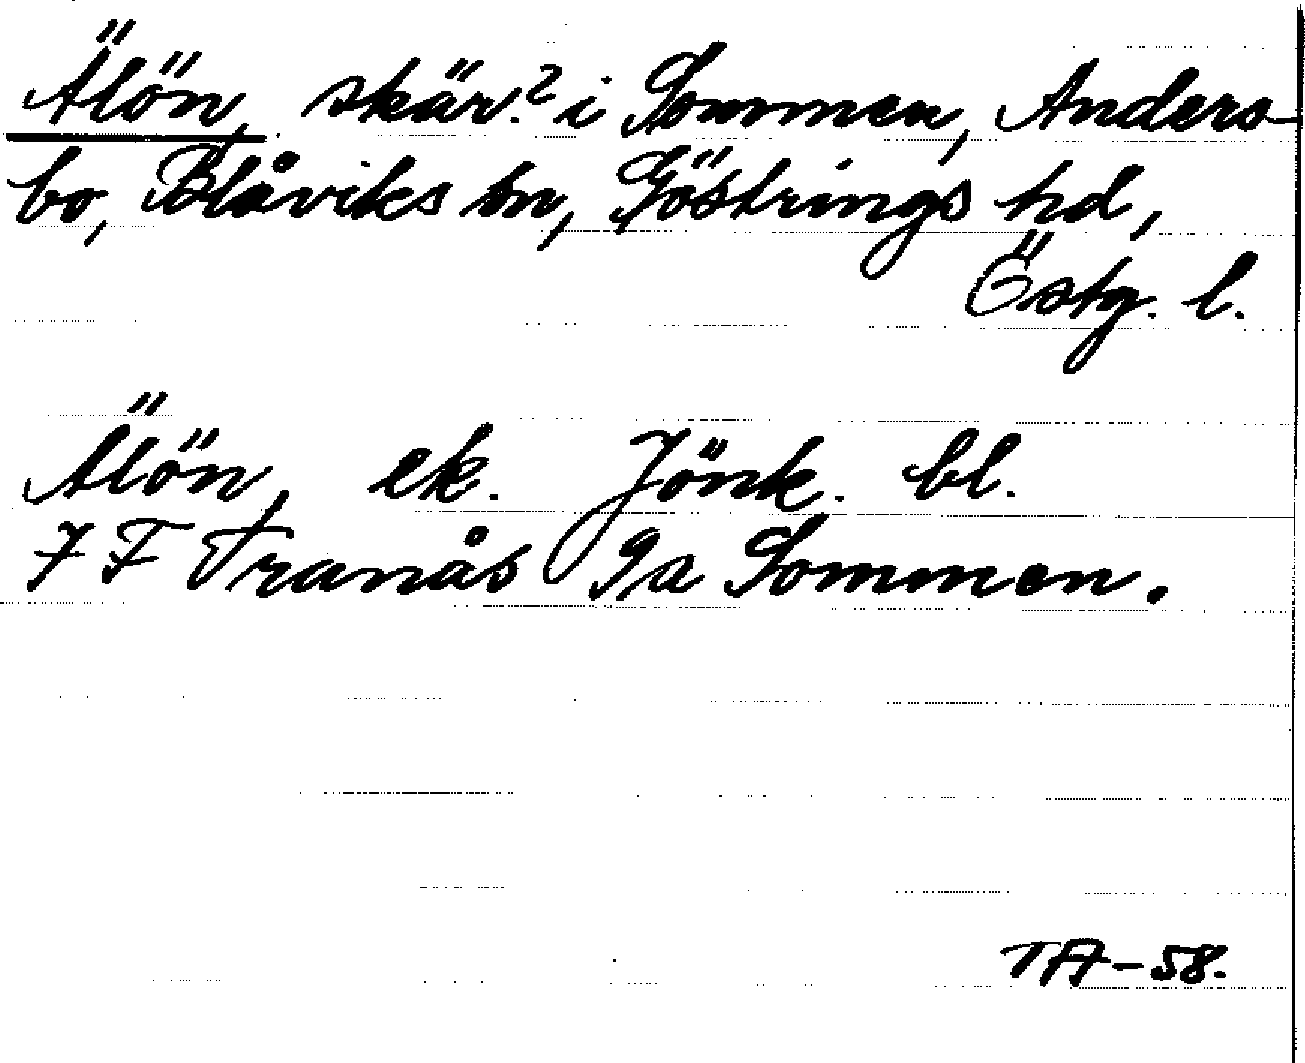 Älön, skär? i Sommen, Anders-
bo, Blåviks sn, Göstrings hd,
Östg. l.
Älön, ek. Jönk. bl.
7 F Tranås 9a Sommen.
TA-58.